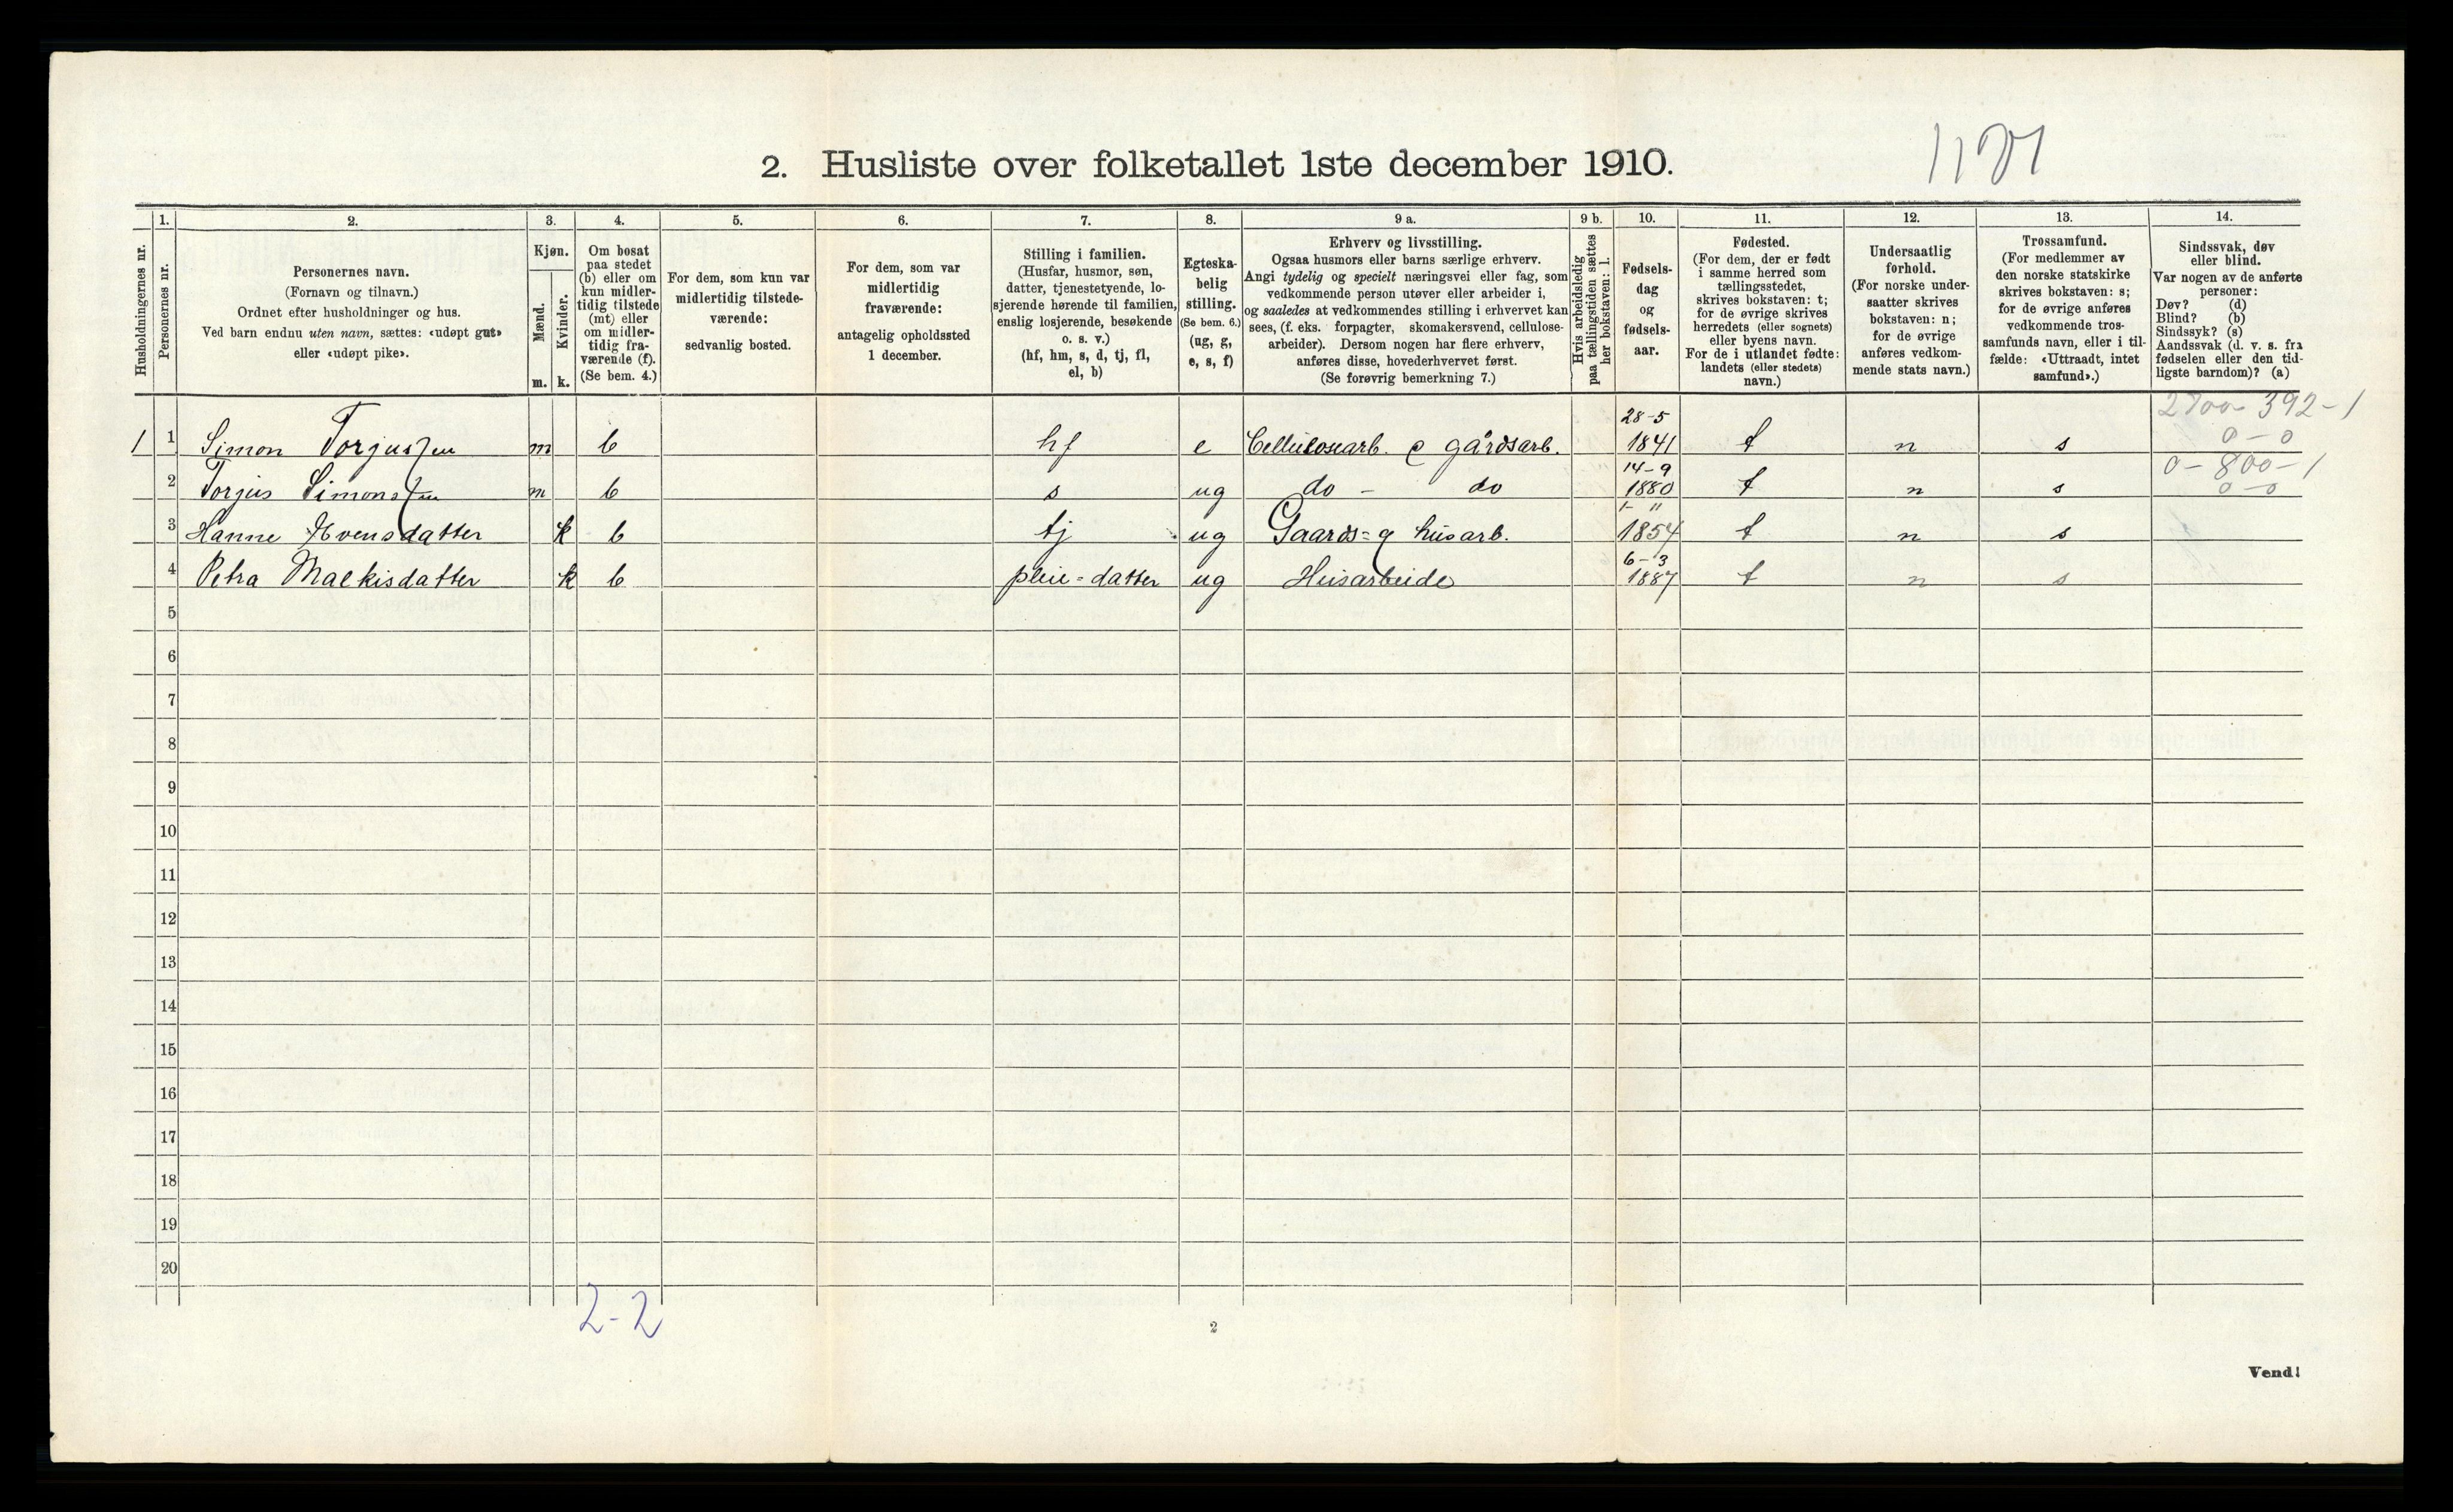 2. Husliste over folketallet 1ste december 1910.
Husholdningernes nr.
1.
Personernes nr.
2.
Personernes navn.
(Fornavn og tilnavn.)
Ordnet efter husholdninger og hus.
Ved barn endnu uten navn, sættes: «udøpt gut»
eller «udøpt pike».
3.
Kjøn.
Mænd.
Kvinder.
m. k.
4.
Om bosat
paa stedet
(b) eller om
kun midler-
tidig tilstede
(mt) eller
om midler-
tidig fra-
værende (f).
(Se bem. 4.)
5.
For dem, som kun var
midlertidig tilstede-
værende:
sedvanlig bosted.
6.
For dem, som var
midlertidig
fraværende:
antagelig opholdssted
1 december.
7.
Stilling i familien.
(Husfar, husmor, søn,
datter, tjenestetyende, lo-
sjerende hørende til familien,
enslig losjerende, besøkende
o. s. v.)
(hf, hm, s, d, tj, fl,
el, b)
8.
Egteska-
belig
stilling.
(Se bem. 6.)
(ug, g,
e, s, f)
9 a.
Erhverv og livsstilling.
Ogsaa husmors eller barns særlige erhverv.
Angi tydelig og specielt næringsvei eller fag, som
vedkommende person utøver eller arbeider i,
og saaledes at vedkommendes stilling i erhvervet kan
sees, (f. eks. forpagter, skomakersvend, cellulose-
arbeider). Dersom nogen har flere erhverv,
anføres disse, hovederhvervet først.
(Se forøvrig bemerkning 7.)
9 b.
Hvis arbeidsledig
paa tællingstiden sættes
her bokstaven: l.
10.
Fødsels-
dag
og
fødsels-
aar.
11.
Fødested.
(For dem, der er født
i samme herred som
tællingsstedet,
skrives bokstaven: t;
for de øvrige skrives
herredets (eller sognets)
eller byens navn.
For de i utlandet fødte:
landets (eller stedets)
navn.)
12.
Undersaatlig
forhold.
(For norske under-
saatter skrives
bokstaven: n;
for de øvrige
anføres vedkom-
mende stats navn.)
13.
Trossamfund.
(For medlemmer av
den norske statskirke
skrives bokstaven: s;
for de øvrige anføres
vedkommende tros-
samfunds navn, eller i til-
fælde: «Uttraadt, intet
samfund».)
14.
Sindssvak, døv
eller blind.
Var nogen av de anførte
personer:
Døv? (d)
Blind? (b)
Sindssyk? (s)
Aandssvak (d. v. s. fra
fødselen eller den tid-
ligste barndom)? (a)
2700 392-1
0-0
1 1 Simon Torgussen m b hf e Cellulosearb. & gårdsarb. 28-5 1841 t n s
0-800-1
0-0
2 Torjus Simonsen m b s ug do - do 14-9 1880 t n s
3 Hanne Evensdatter k b tj ug Gaards= g husarb. 1854 t n s
4 Petra Malkisdatter k b pleie=datter ug Husarbeide 6-3 1887 t n s
5
6
7
8
9
10
11
12
13
14
15
16
17
18
19
20
2-2
2
Vend!